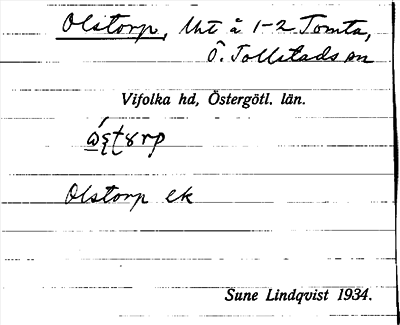 Olstorp, lht å 1-2 Tomta,
Ö. Tollstads sn
Vifolka hd, Östergötl. län.
Olstorp ek
Sune Lindqvist 1934.